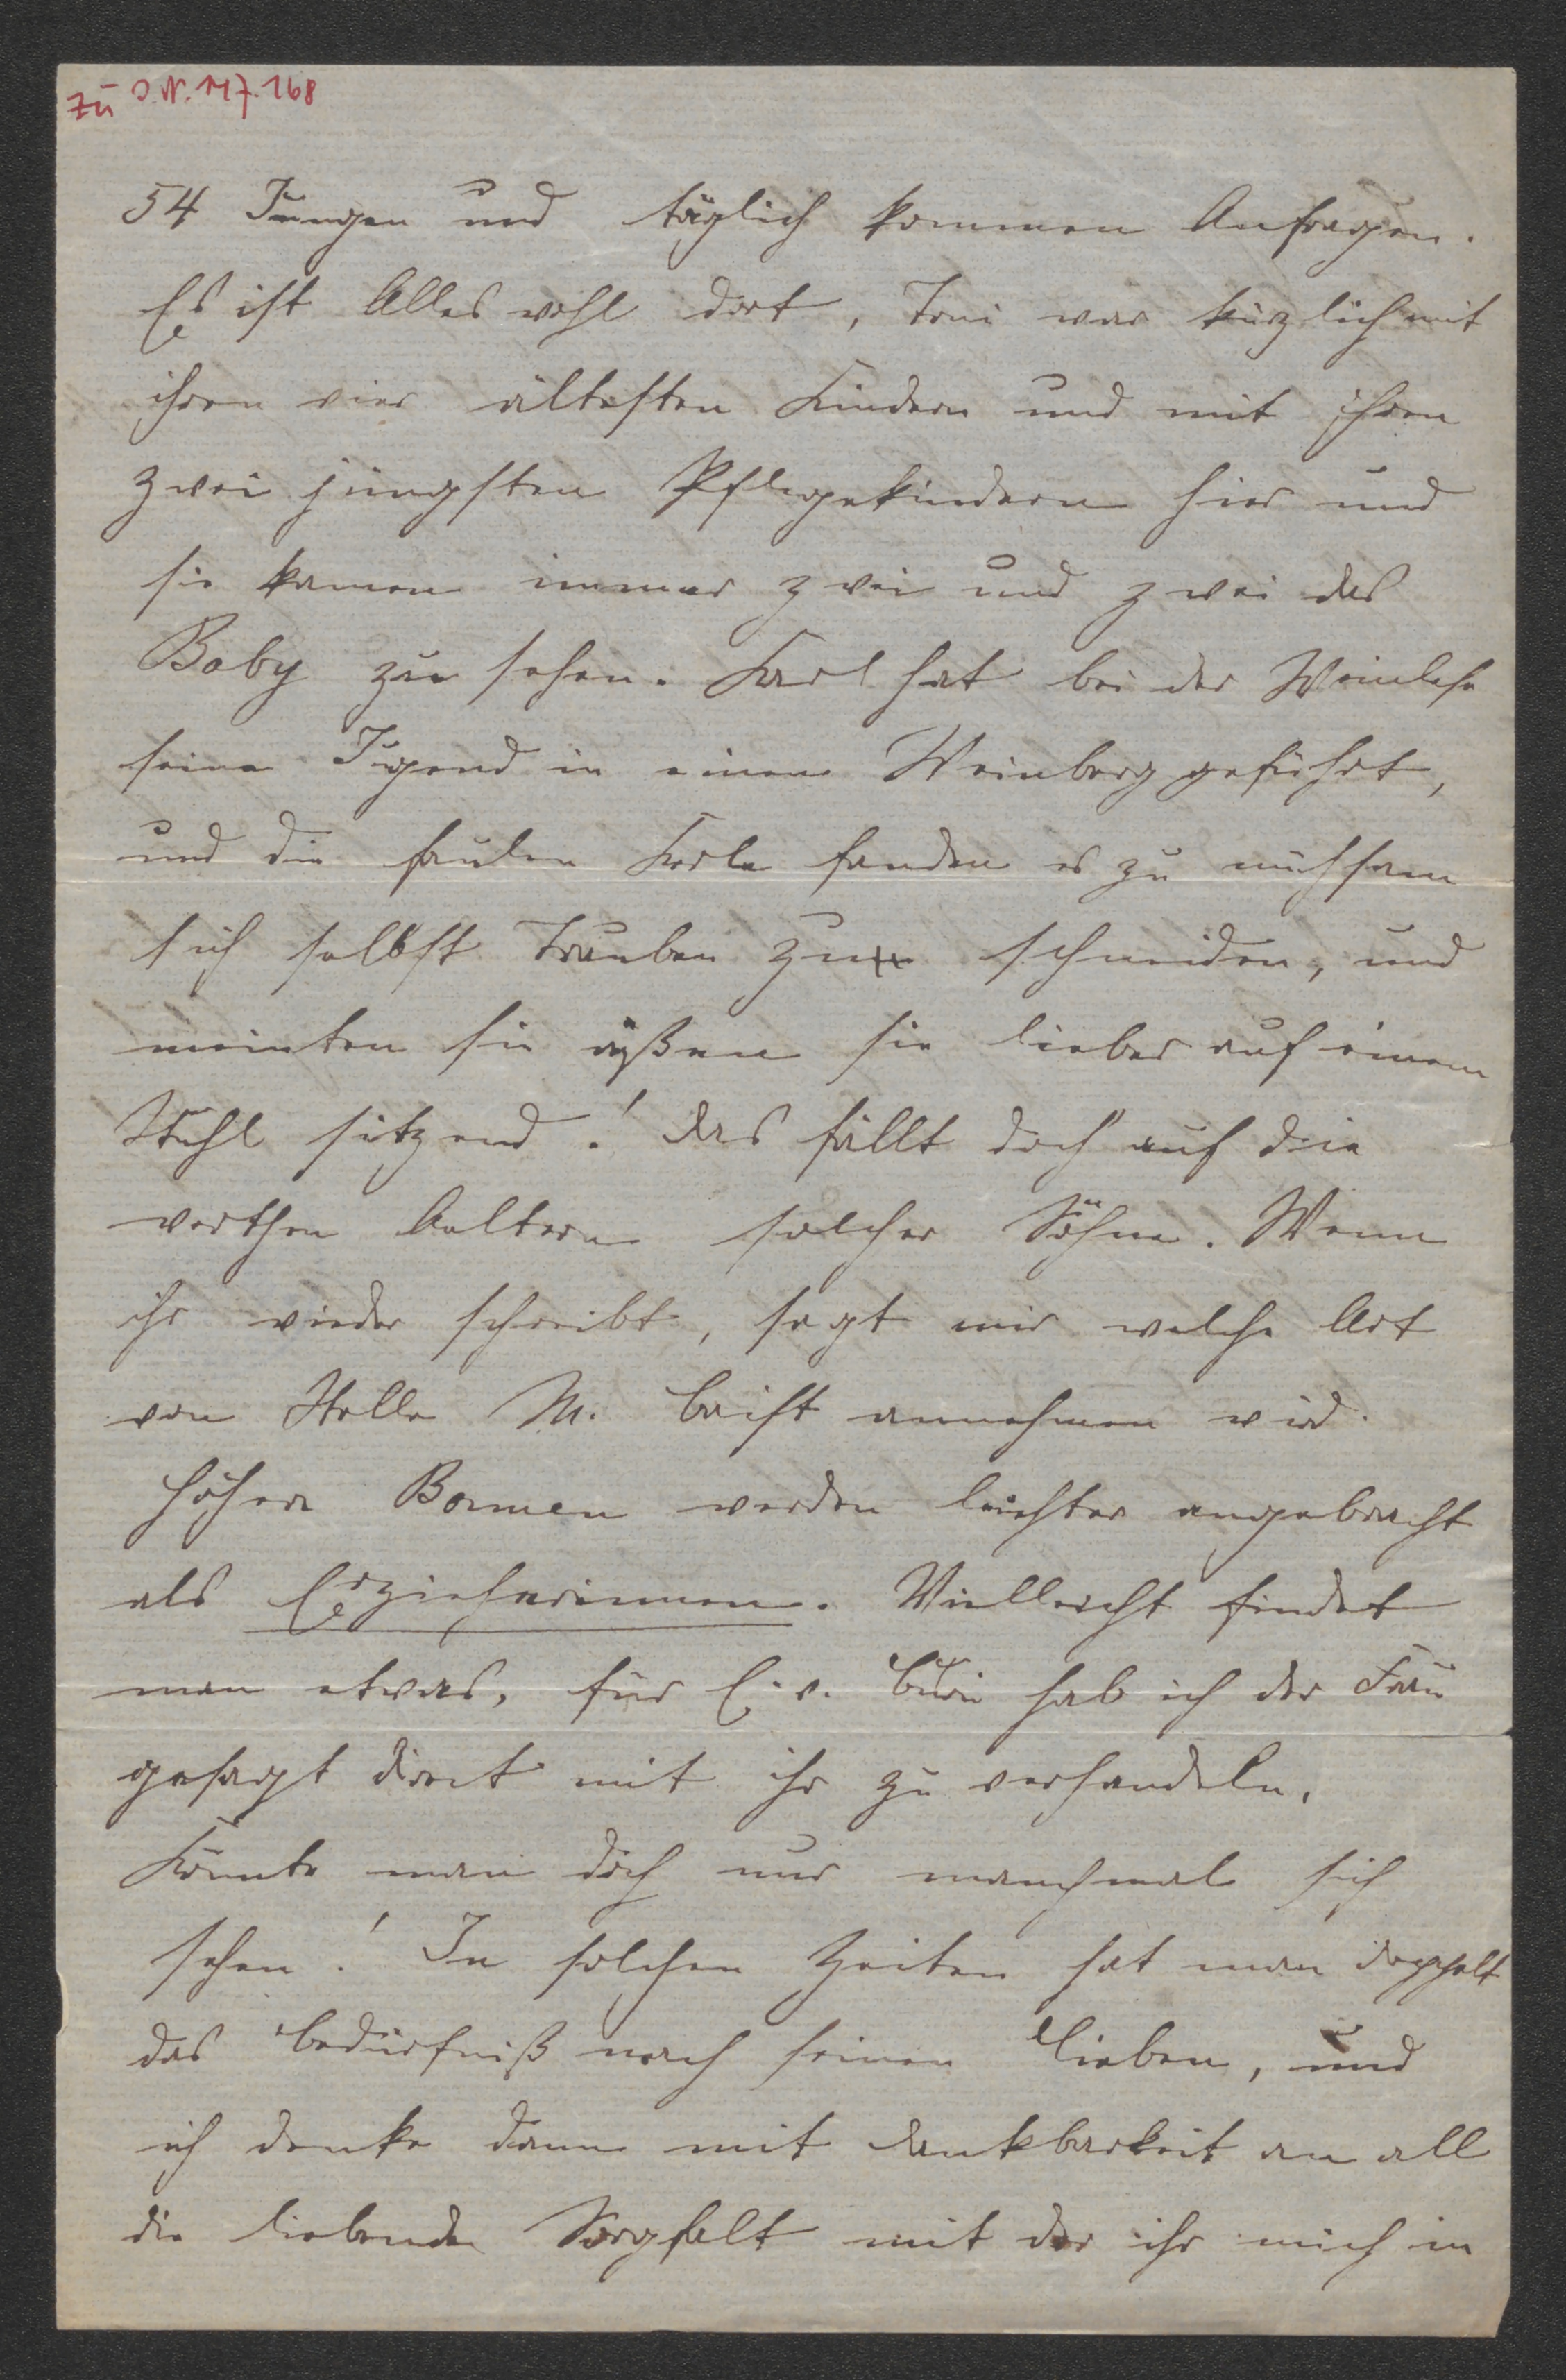 zu I.N. 117.168
54 Jungen und täglich kommen Anfragen.
Es ist Alles wohl dort, Toni war kürzlich mit
ihren vier ältesten Kindern und mit ihren
zwei jüngsten Pflegekindern hier und
sie kamen immer zwei und zwei das
Baby zu sehen. Karl hat bei der Weinlese
seine Jugend in einen Weinberg geführt,
und die faulen Kerle fanden es zu mühsam
sich selbst Trauben zu schneiden, und
meinten sie äßen sie lieber auf einem
Stuhl sitzend! das fällt doch auf die
werthen Aeltern solcher Söhne. Wenn
ihr wieder schreibt, sagt mir welche Art
von Stelle M. annehmen wird.
höhere Bonnen werden leichter angebracht
als Erzieherinnen. Vielleicht findet
man etwas, für E. v. hab ich der Frau
gesagt direct mit ihr zu verhandeln.
Könnte man doch nur manchmal sich
sehen! In solchen Zeiten hat man doppelt
das Bedürfniß nach seinen Lieben, und
ich denke dann mit Dankbarkeit an all
die liebende Sorgfalt mit der ihr mich in